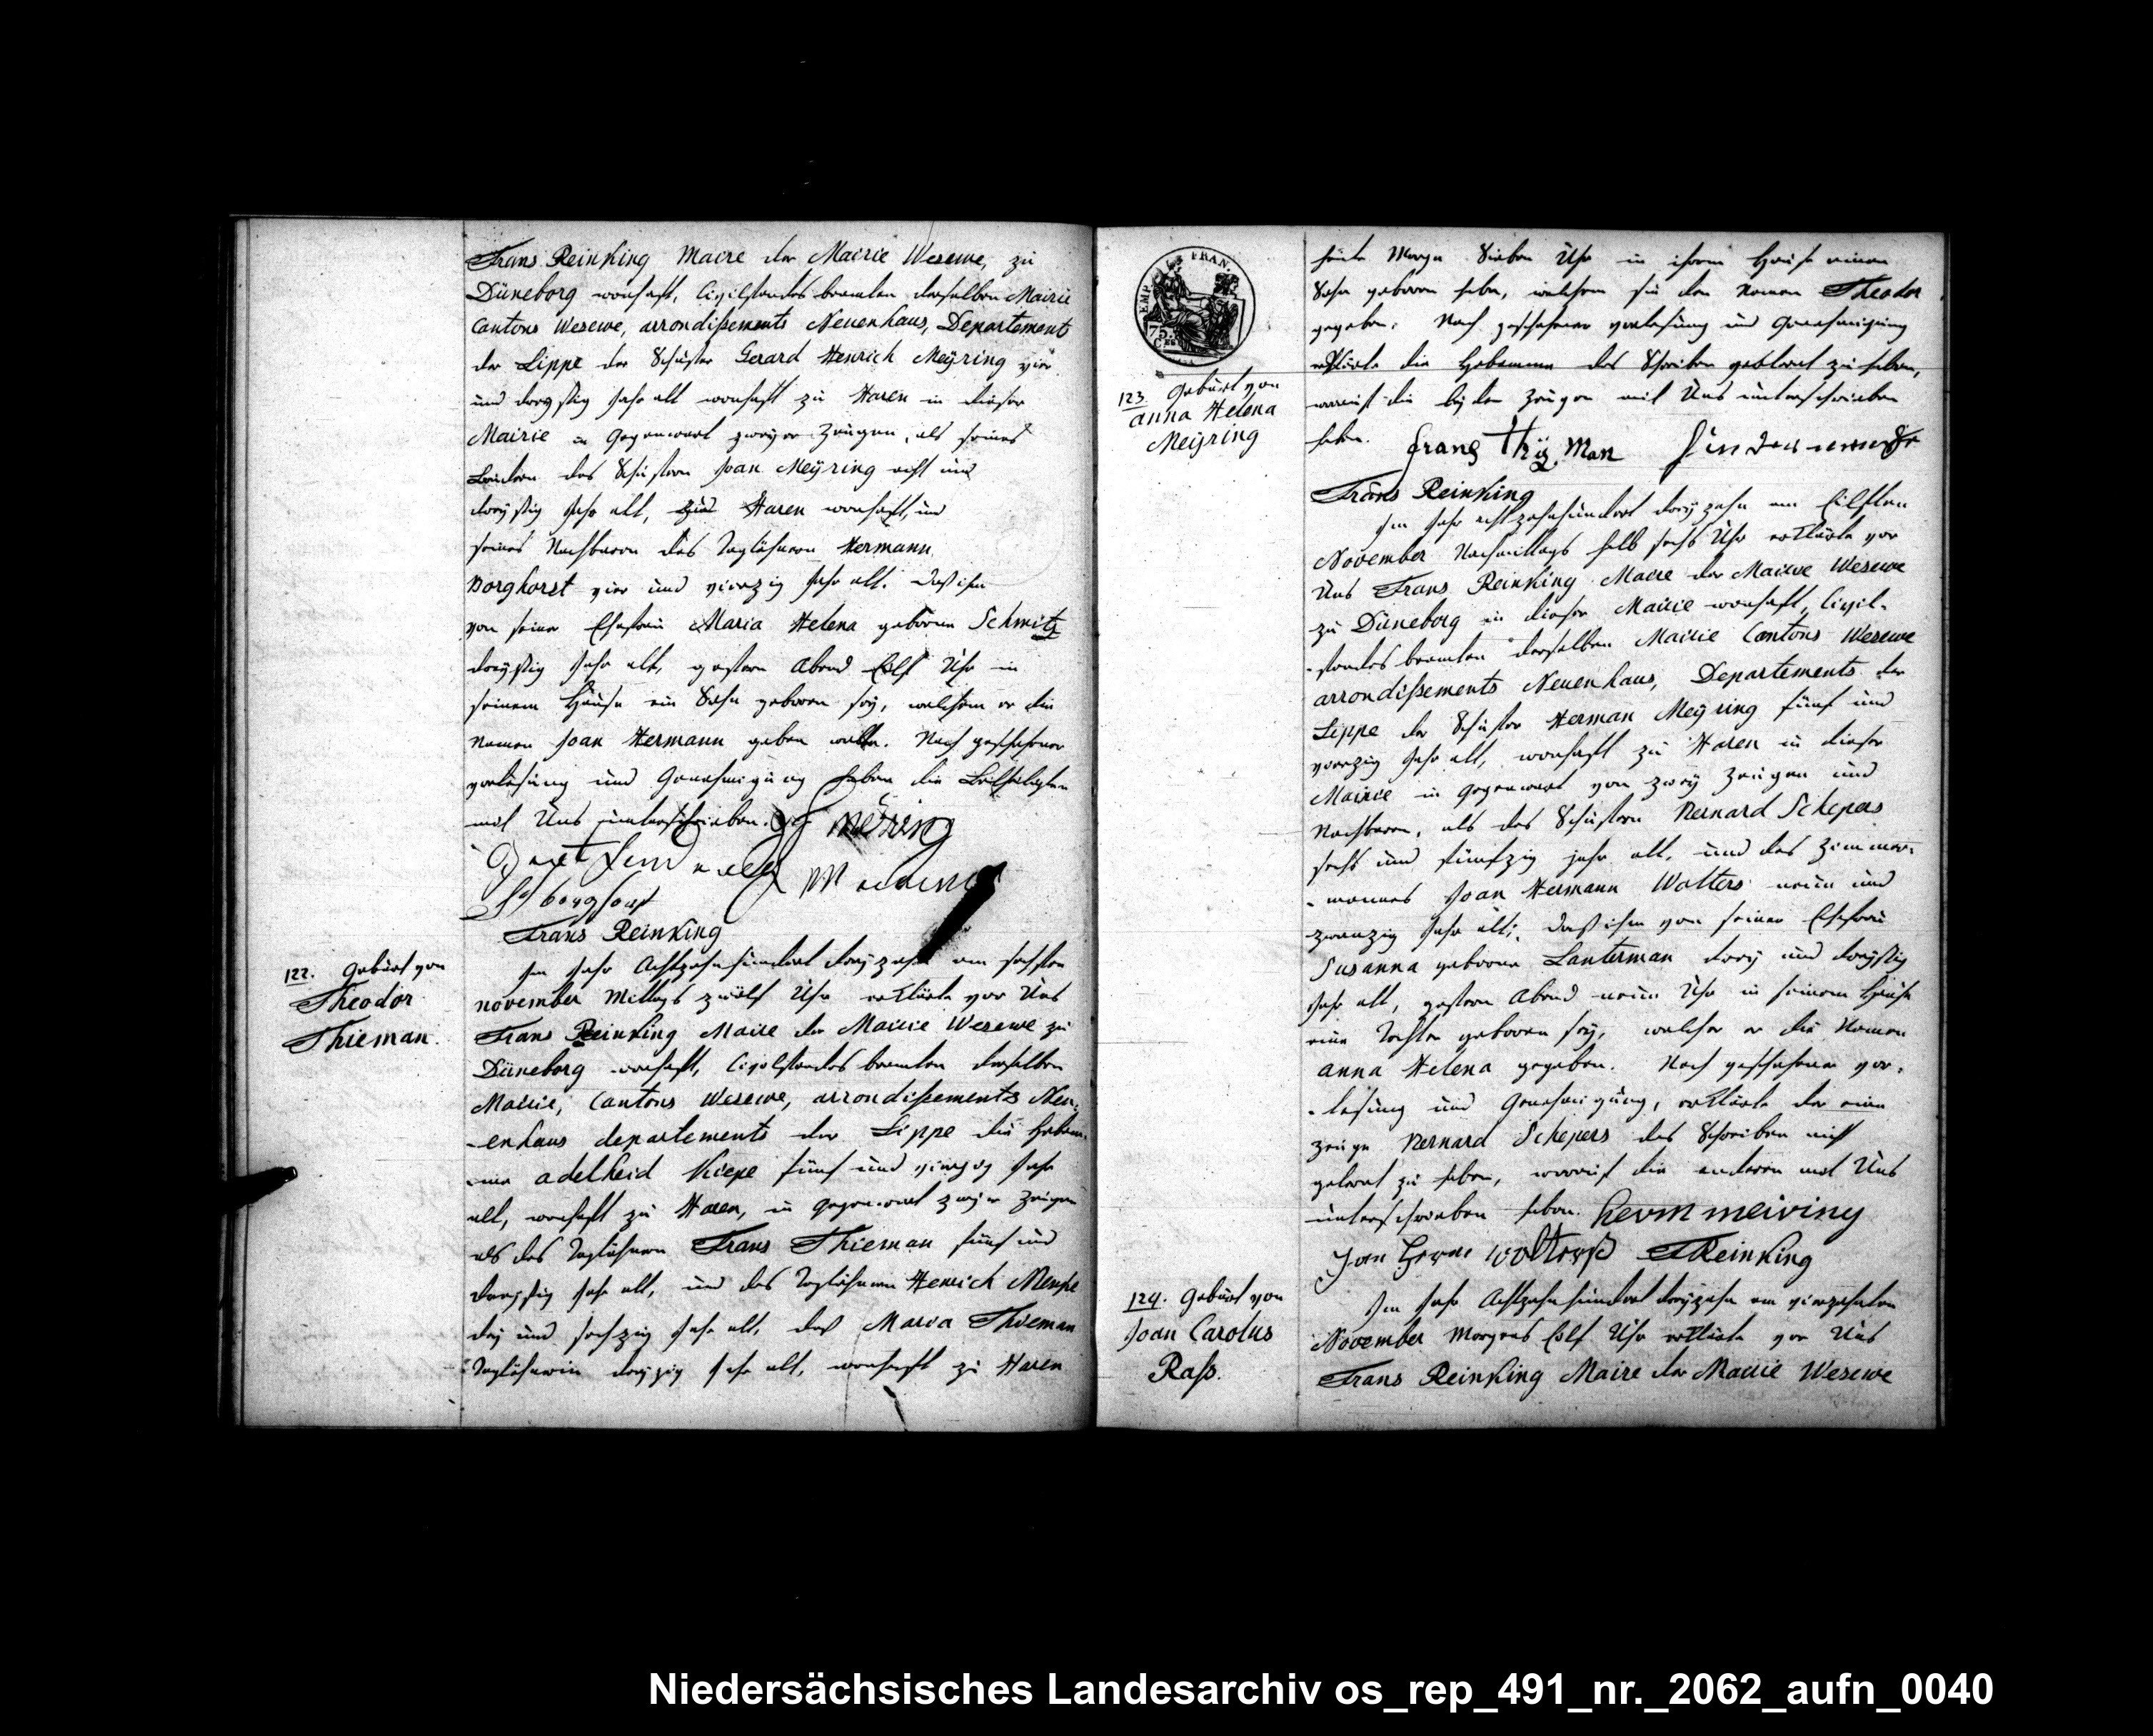 Frans Reinking Maire der Mairie Wesewe, zu
Düneborg wonhaft, Civilstandes beamten derselben Mairie
Cantons Wesewe, arrondißements Neuenhaus, Departements
der Lippe der Schuster Gerard Henrich Meÿring vier
und dreyßig Jahr alt wonhaft zu Haren in dieser
Mairie in Gegenwart zweyer Zeugen, als seines
Bruders des Schusters Joan Meÿring acht und
dreyßig Jahr alt, zu Haren wonhaft, und
seines Nachbaren des Taglöhners Hermann
Borghorst vier und vierzig Jahr alt. daß ihm
von seiner Ehefrau Maria Helena geborne Schmitz
dreyßig Jahr alt, gestern Abend Eilf Uhr in
seinem Hause ein Sohn geboren seÿ, welchem er die
Namen Joan Hermann geben wolle. Nach geschehener
verlesung und Genehmigung haben die Betheiligten
mit Uns unterschrieben.
Frans Reinking
122. Geburt von
Theodor
Thieman.
Im Jahr Achtzehnhundert dreyzehn am sechsten
november Mittags zwölf Uhr erklärte vor Uns
Frans Reinking Maire der Mairie Wesewe zu
Düneborg wonhaft, Civilstandes beamten derselben
Mairie, Cantons Wesewe, arrondißements Neu-
-enhaus departements der Lippe die Hebam-
-me adelheid Kiepe fünf und vierzig Jahr
alt, wonhaft zu Haren, in Gegenwart zweyer Zeugen
als des Taglöhners Frans Thieman fünf und
dreyßig Jahr alt, und des Taglöhners Henrich Menke
drey und sechzig Jahr alt, daß Maria Thieman
Taglöhnerin dreyzig Jahr alt, wonhaft zu Haren
EMP FRAN.
75.
heute Morgen Sieben Uhr in ihrem Hause einen
Sohn geboren habe, welchem sie den Namen Theodor
gegeben. Nach geschehener verlesung und Genehmigung
erklärte die Hebamme das Schreiben gelernt zu haben,
worauf die beyden Zeugen mit Uns unterschrieben
haben. franz thÿ Man
Frans Reinking
123. Geburt von
anna Helena
Meÿring
Im Jahr achtzehnhundert dreyzehn am Eilften
November Nachmittags halb sechs Uhr erklärte vor
Uns Frans Reinking Maire der Mairie Wesewe
zu Düneborg in dieser Mairie wonhaft, Civil-
-standes beamten derselben Mairie Cantons Wesewe
arrondißements Neuenhaus, Departements der
Lippe der Schuster Herman Meÿring fünf und
vierzig Jahr alt, wonhaft zu Haren in dieser
Mairie in Gegenwart von zweÿ Zeugen und
Nachbaren, als des Schusters Bernard Schepers
sechs und fünfzig jahr alt, und des Zimmer-
-mannes Joan Hermann Wolters neun und
zwanzig Jahr alt; daß ihm von seiner Ehefrau
Susanna geborne Lanterman dreÿ und dreyßig
Jahr alt, gestern Abend neun Uhr in seinem Hause
eine Tochter geboren seÿ, welcher er die Namen
anna Helena gegeben. Nach geschehener ver-
-lesung und Genehmigung, erklärte der eine
zeuge Bernard Schepers das Schreiben nicht
gelernt zu haben, worauf die anderen mit Uns
unterschrieben haben. herm meiring
Jan Herm wolterß FReinking
124. Geburt von
Joan Carolus
Raß.
Im Jahr Achtzehnhundert dreyzehn am vierzehnten
November Morgens Eilf Uhr erklärte vor Uns
Frans Reinking Maire der Mairie Wesewe
Niedersächsisches Landesarchiv os_rep_491_nr._2062_aufn_0040